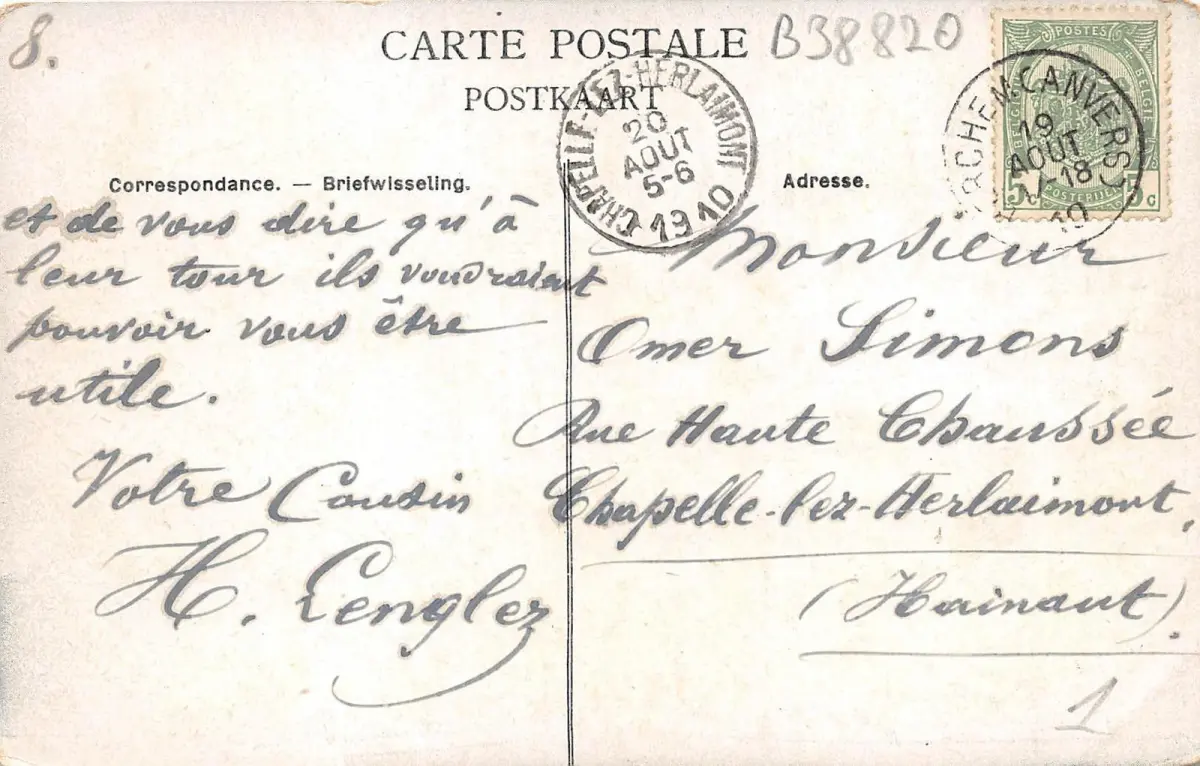 8.
CARTE POSTALE
B38820
POSTKAART
CHAPELLE-LEZ-HERLAIMONT
20
AOUT
5-6
1910
POSTES
BELGIQUE
BELGIE
5c
5c
POSTERIJEN
(ANVERS)
19
AOUT
18
10
Correspondance. — Briefwisseling.
Adresse.
et de vous dire qu'à
leur tour ils voudraient
pouvoir vous être
utile.
Votre Cousin
H. Lenglez
Monsieur
Omer Simons
Rue Haute Chaussée
Chapelle-lez-Herlaimont,
(Hainaut).
1